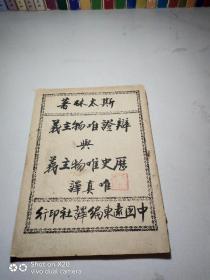 斯太林著
辯證唯物主義
與
歷史唯物主義
唯真譯
中国遠東編譯社印行
SHOT ON
AI DUAL CAMERA